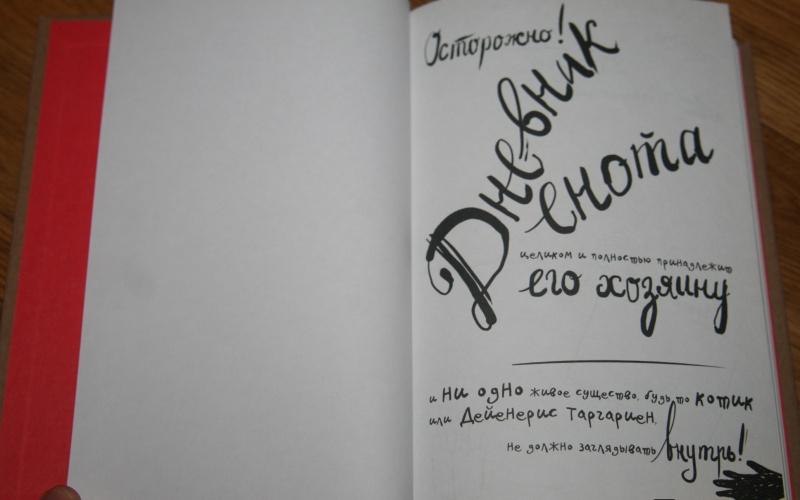 Осторожно!
Дневник
енота
целиком и полностью принадлежит
его хозяину
и ни одно живое существо, будь то котик
или Дейенерис Таргариен,
не должно заглядывать внутрь!